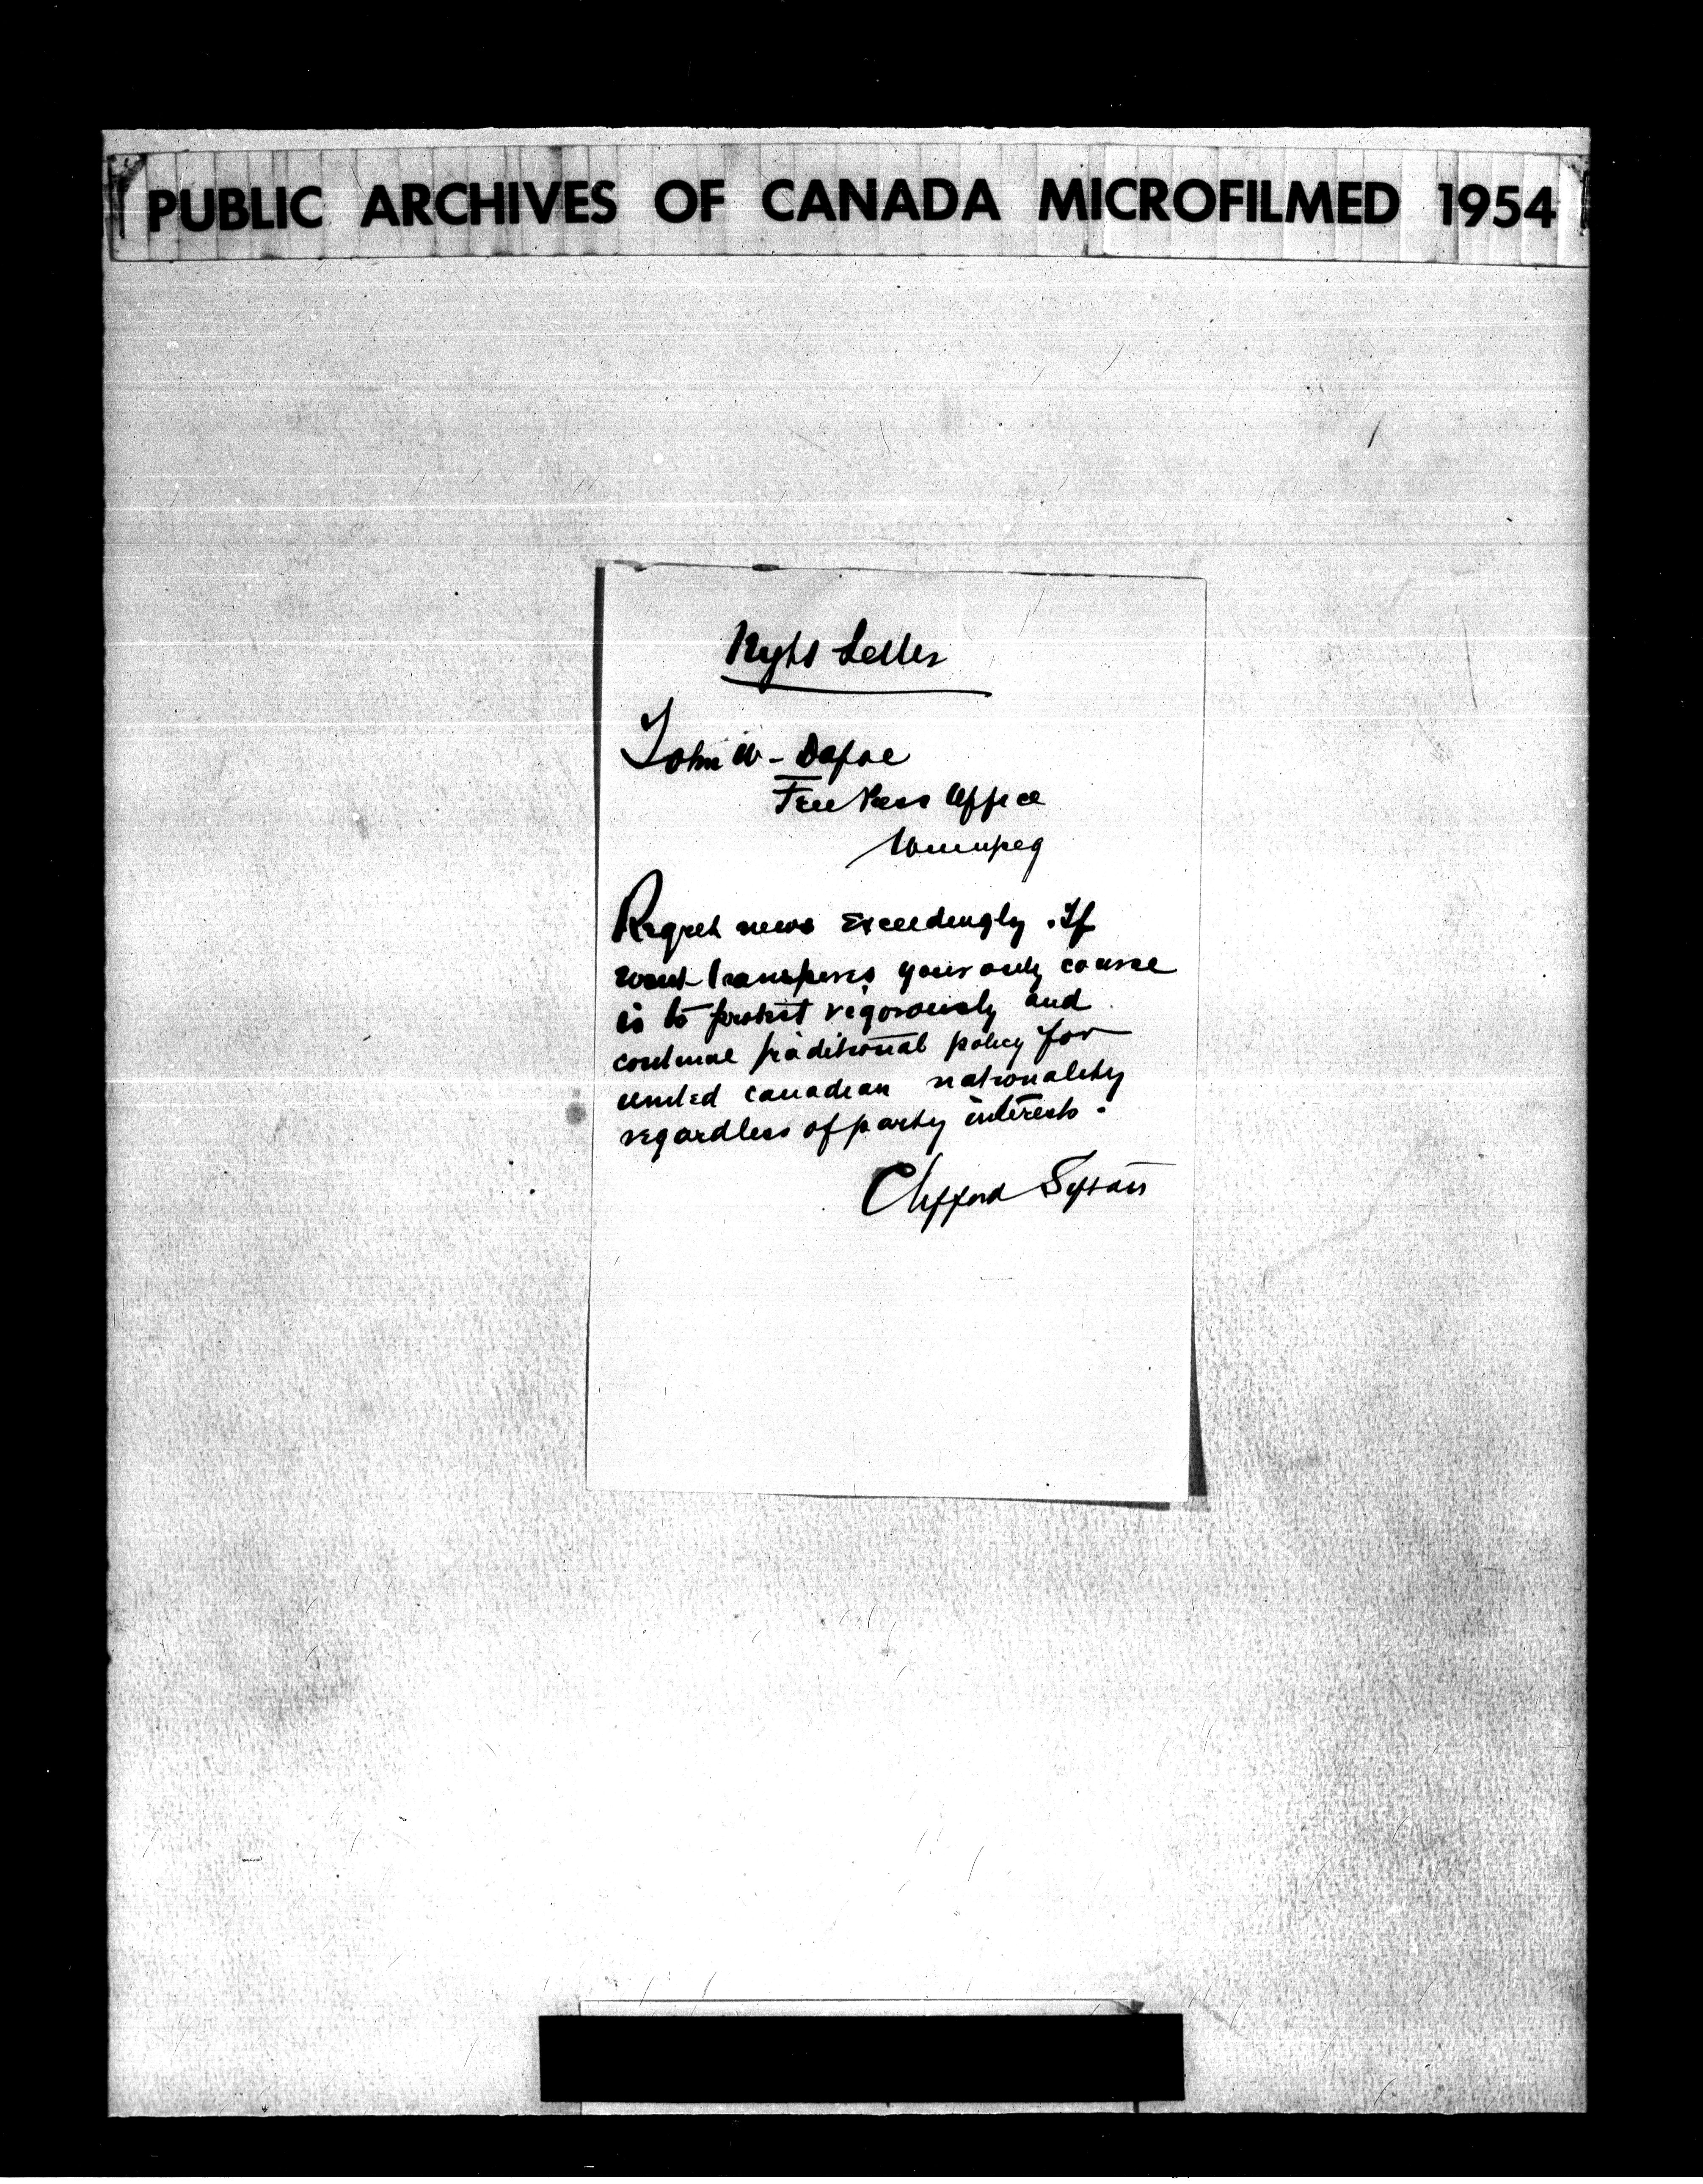 PUBLIC ARCHIVES OF CANADA MICROFILMED 1954
Night Letter
John W - Dafoe
Free Press Office
Winnipeg
Regret news exceedingly . If
transpires your only course
is to protest vigorously and
continue traditional policy for
united canadian nationality
regardless of party interests .
Clifford Sifton